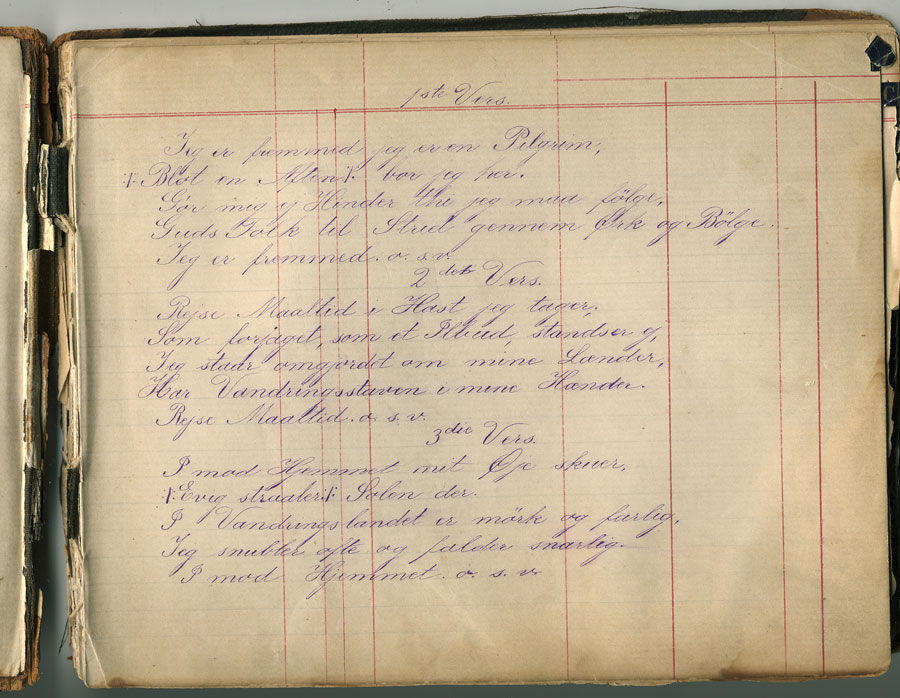 1ste Vers.
Jeg er fremmed jeg er en Pilgrim,
/: Blot en Aften :/ bor jeg her.
Gör mig ej Hinder thi jeg maa fölge,
Guds Folk til Strid gennem Ørk og Bölge.
Jeg er fremmed. o. s. v.
2det Vers.
Rejse Maaltid i Hast jeg tager,
Som forjaget, som et Ilbud, standser ej,
Jeg staar omgjordet om mine Lænder,
Har Vandringsstaven i mine Hænder.
Rejse Maaltid. o. s. v.
3die Vers.
I mod Hjemmet mit Øje skuer,
/: Evig straaler :/ Solen der.
I Vandringslandet er mörk og farlig,
Jeg snubler ofte og falder snarlig.
I mod Hjemmet. o. s. v.